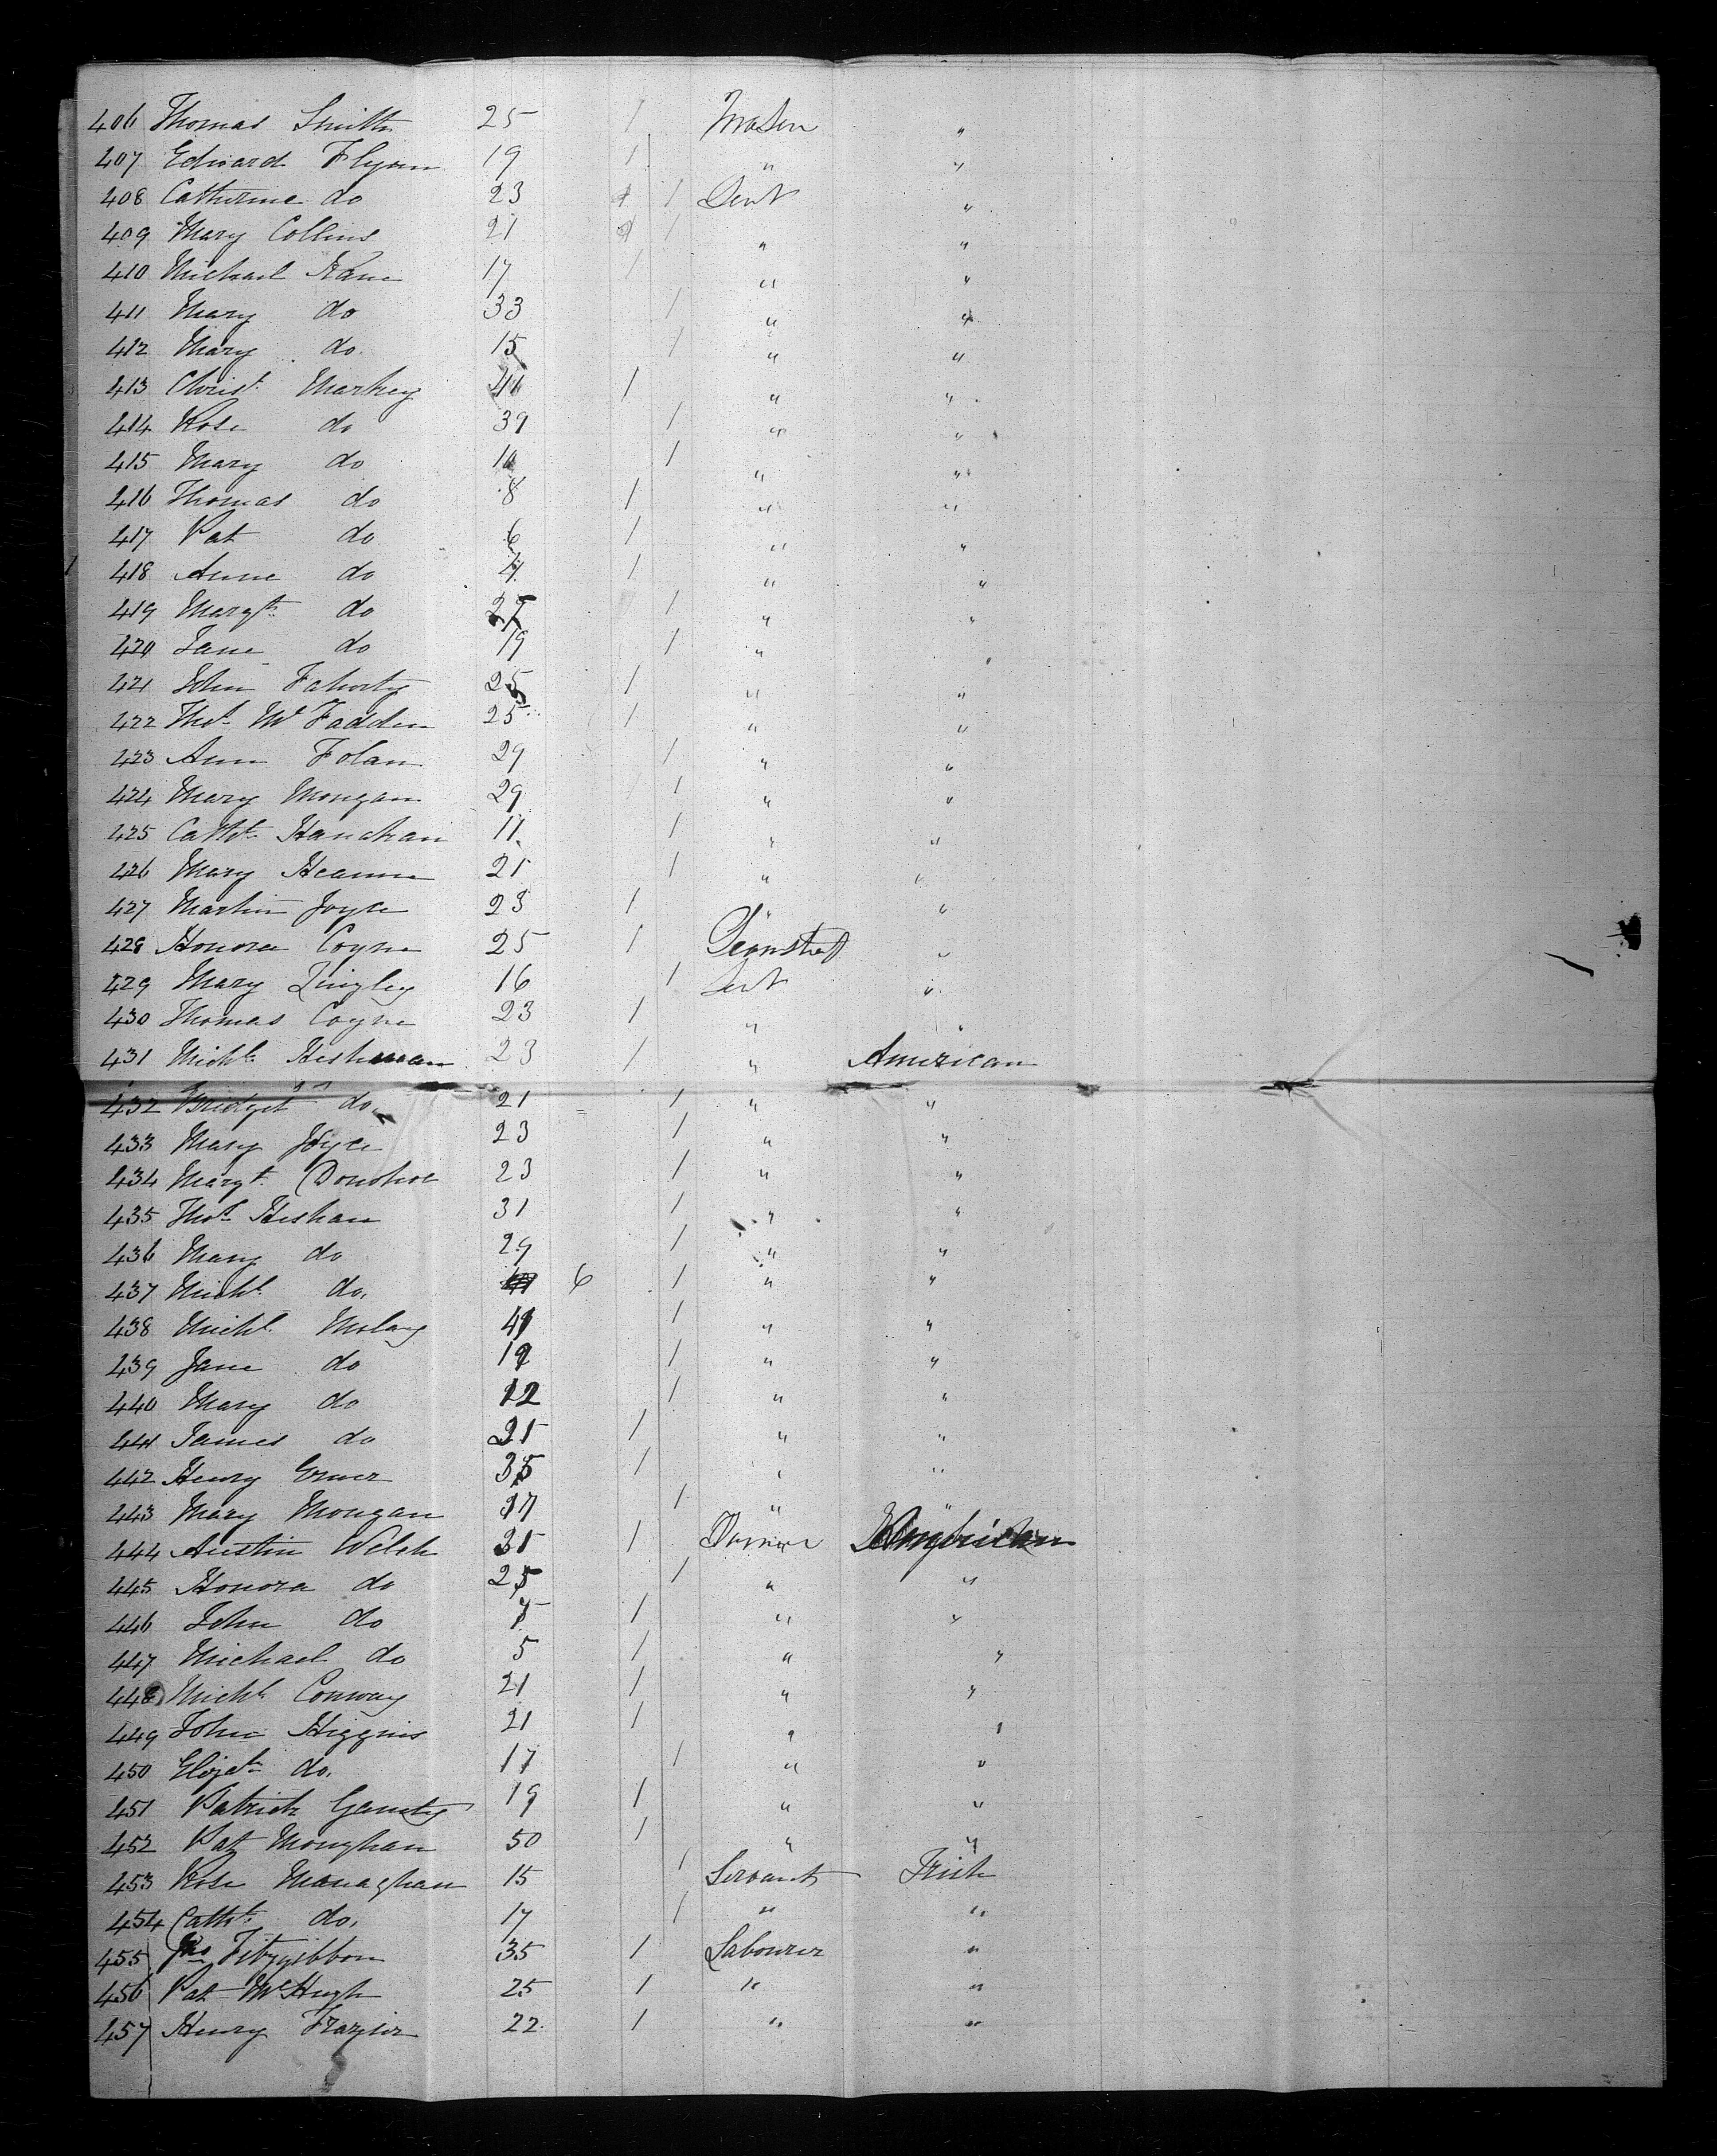 406 Thomas Smith 25 1 Mason "
407 Edward Flynn 19 1 " "
408 Catherine do 23 1 Servt "
409 Mary Collins 21 1 " "
410 Michael Kane 17 1 " "
411 Mary do 33 1 " "
412 Mary do 15 1 " "
413 Christ Markey 41 1 " "
414 Rose do 39 1 " "
415 Mary do 10 1 " "
416 Thomas do 8 1 " "
417 Pat do 6 1 " "
418 Anne do 4 1 " "
419 Margt do 27 1 " "
420 Jane do 19 1 " "
421 John Faherty 25 1 " "
422 Thos McFadden 25 1 " "
423 Ann Folan 29 1 " "
424 Mary Mongan 29 1 " "
425 Cathe Hanahan 11 1 " "
426 Mary Heanne 21 1 " "
427 Martin Joyce 23 1 " "
428 Honora Coyne 25 1 "
429 Mary Lingley 16 1 Servt "
430 Thomas Coyne 23 1 " "
431 Michl 23 1 " American
432 Bridget do 21 1 " "
433 Mary Joyce 23 1 " "
434 Margt Donohoe 23 1 " "
435 Thos Heshan 31 1 " "
436 Mary do 29 1 " "
437 Michl do. 6 1 " "
438 Michl Molay 41 1 " "
439 Jane do 1 " "
440 Mary do 12 1 " "
441 James do 21 1 " "
442 Henry 35 1 " "
443 Mary Mongan 17 1 " "
444 Austin Welsh 31 1
445 Honora do 25 1 " "
446 John do 7 1 " "
447 Michael do 5 1 " "
448 Michl Conway 21 1 " "
449 John Higgins 21 1 " "
450 Elizath do. 17 1 " "
451 Patrick 19 1 " "
452 Pat Monghan 50 1 " "
453 Rose Managhan 15 1 Servant Irish
454 Cathe do. 17 1 " "
455 Jno Fitzgibbon 35 1 Labourer "
456 Pat McHugh 25 1 " "
457 Henry Frazier 22 1 " "